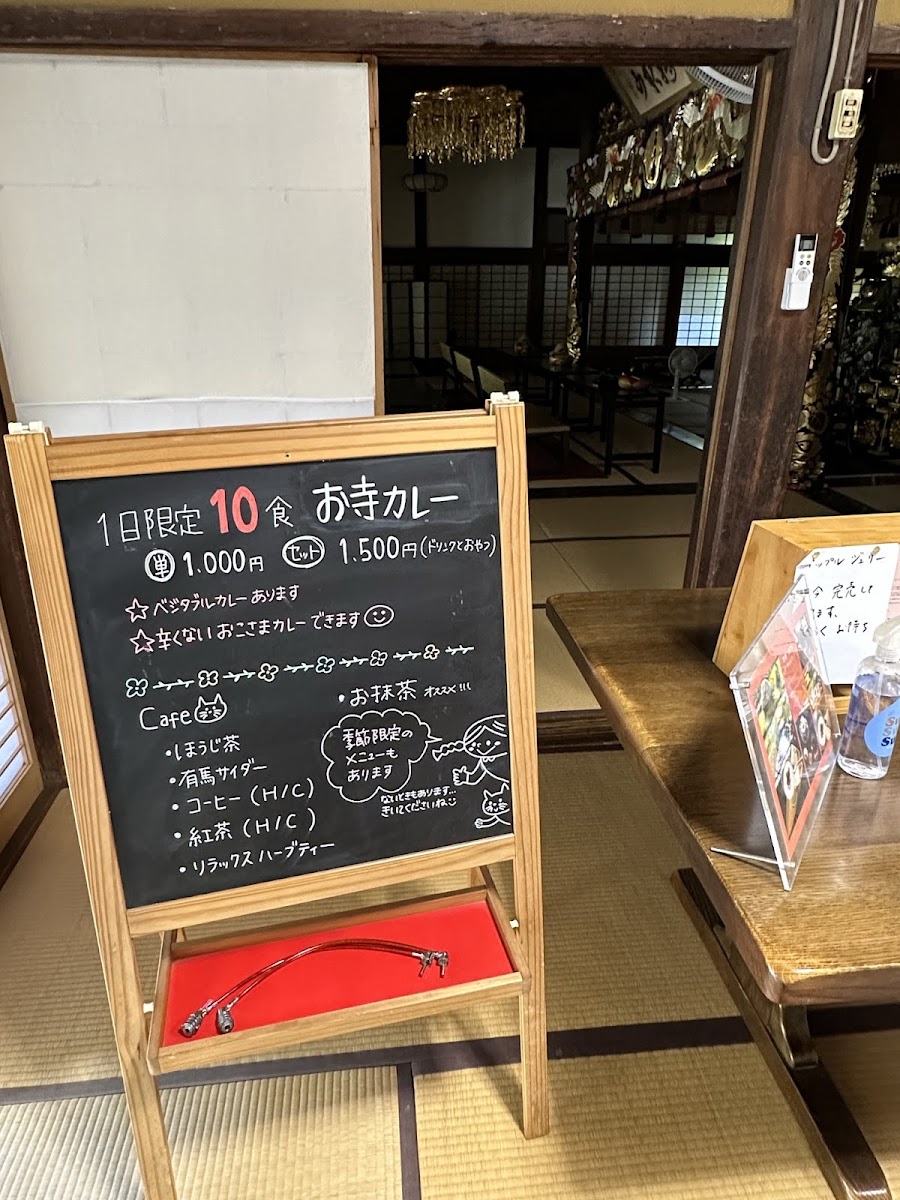 1日限定10食 お寺カレー
単 1,000円 セット 1,500円(ドリンクとおやつ)
☆ベジタブルカレーあります
☆辛くないおこさまカレーできます
Cafe
・ほうじ茶
・有馬サイダー
・コーヒー(H/C)
・紅茶(H/C)
・リラックスハーブティー
・お抹茶 オススメ!!!
季節限定の
メニューも
あります
ないときもあります…
きいてくださいね
ップル ジュリー
完売い
ます、
お待ち